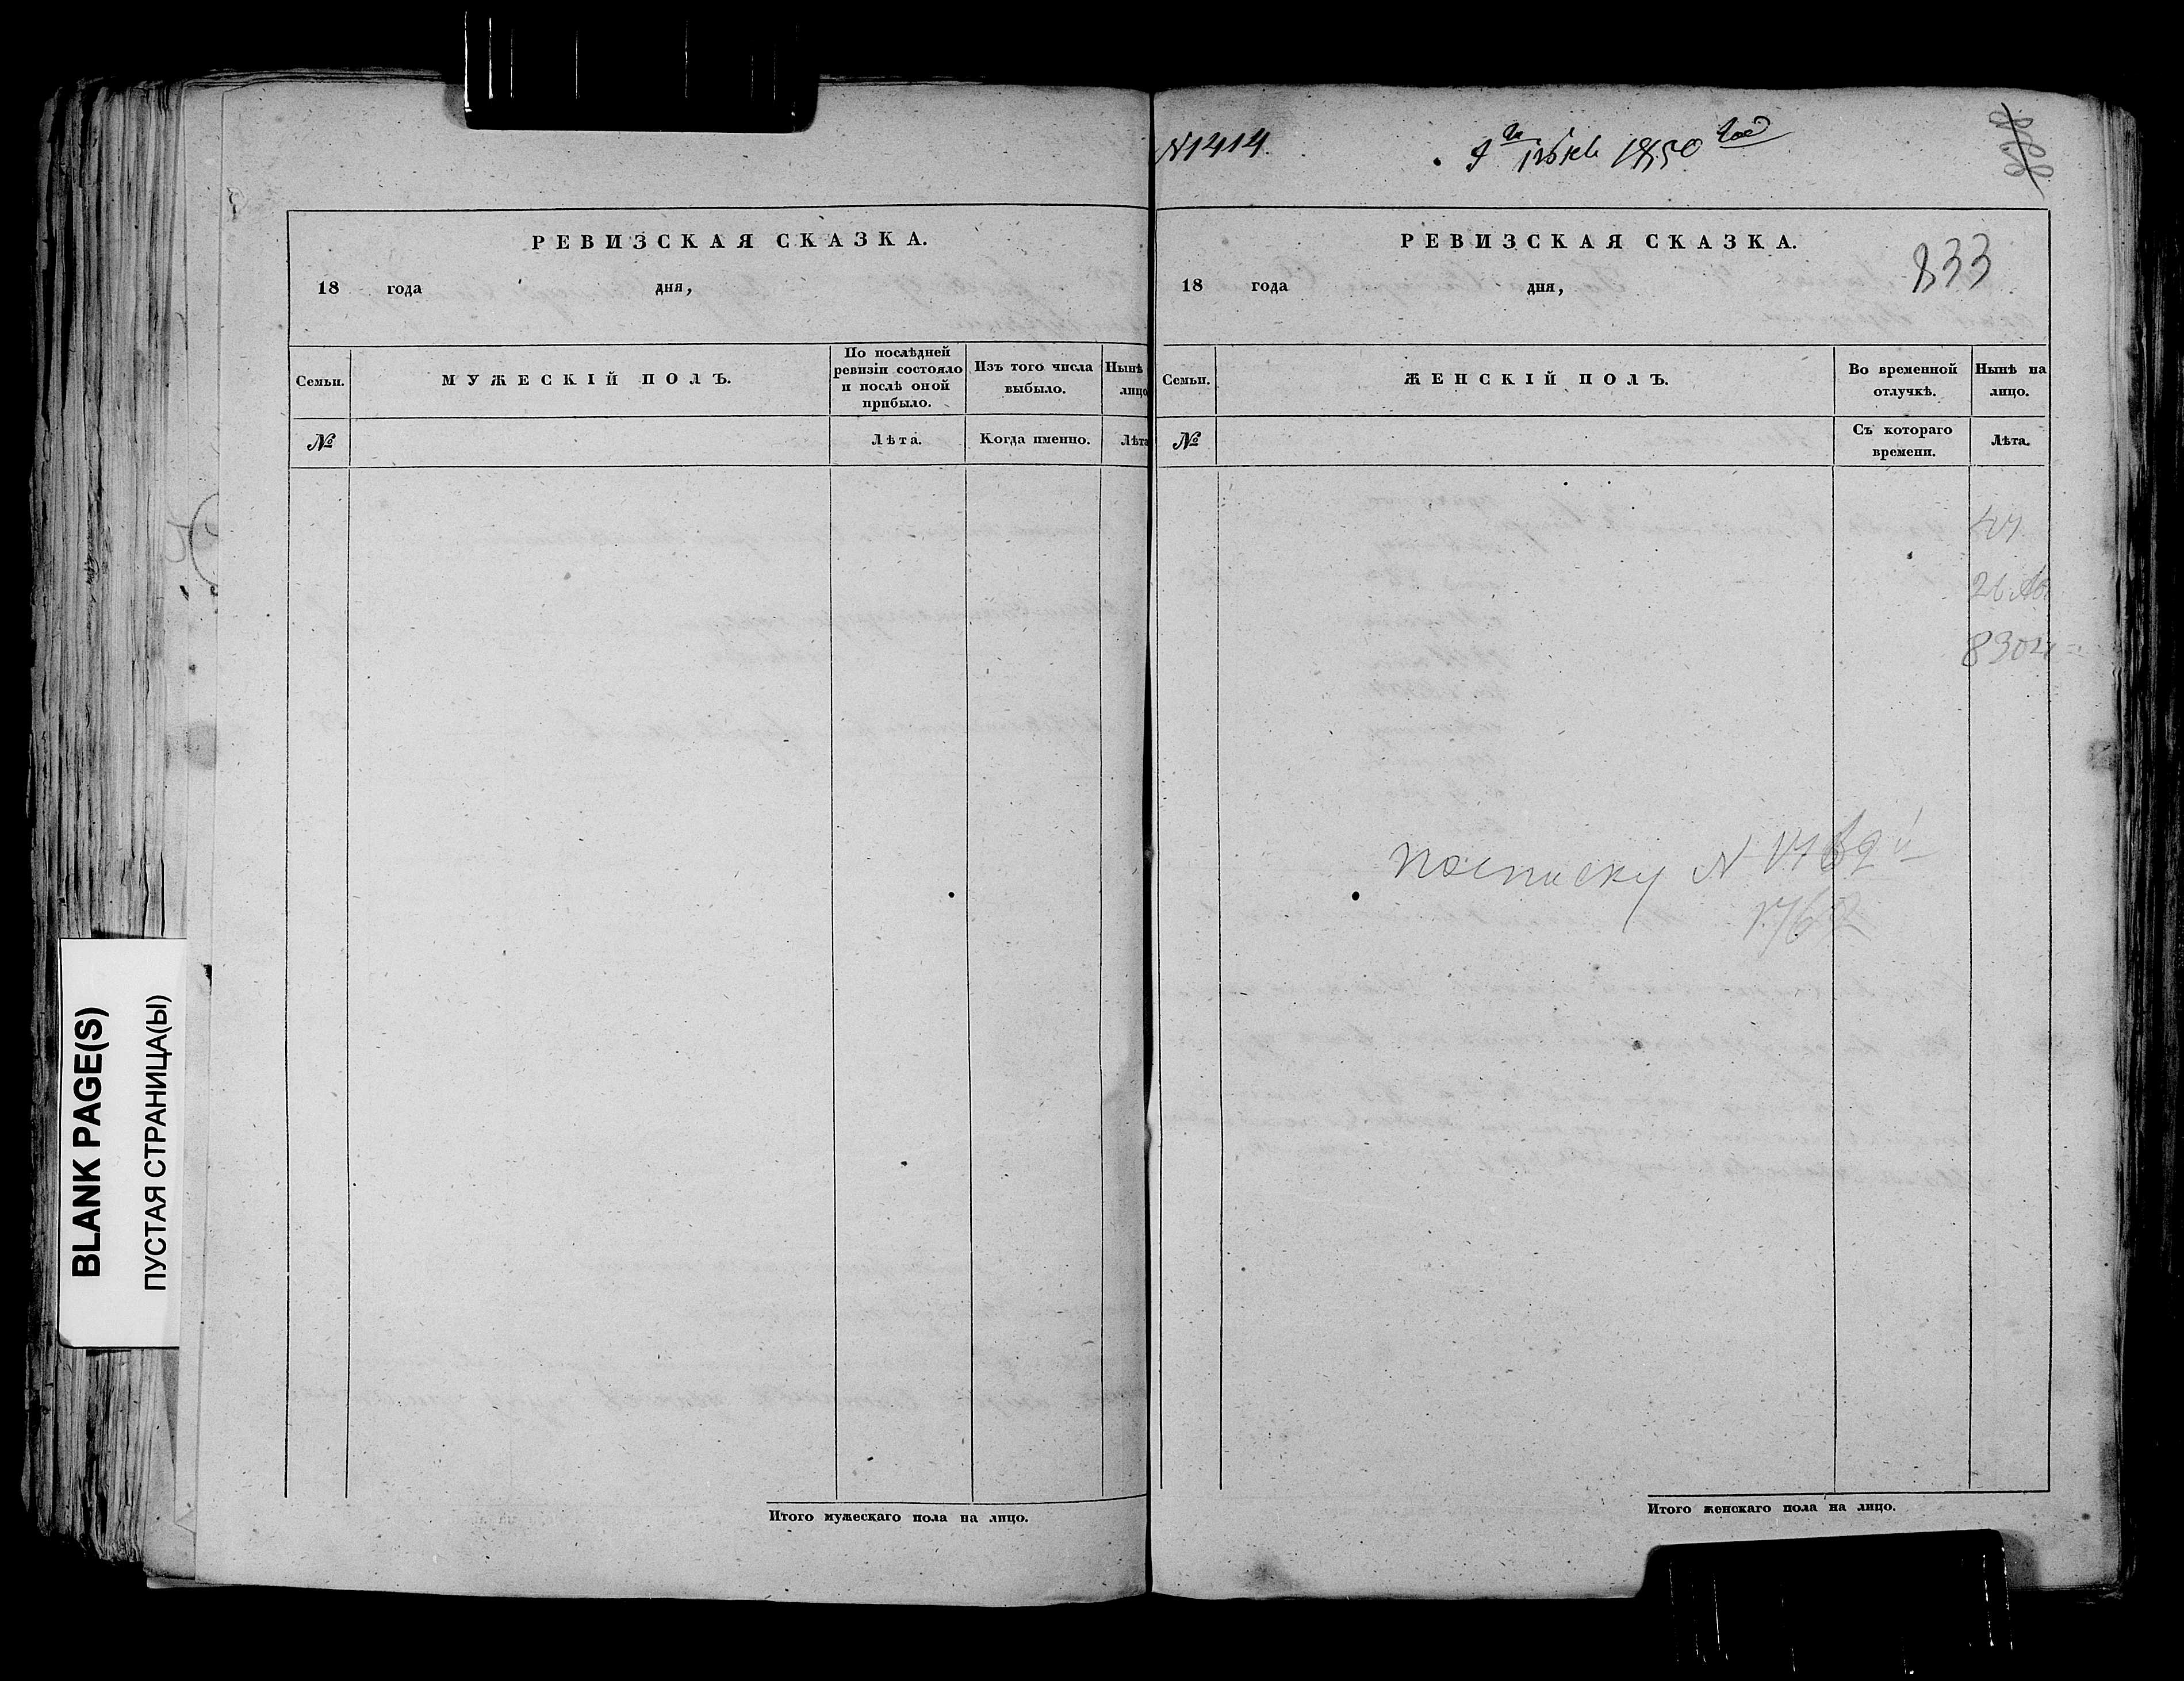 BLANK PAGE(S)
ПУСТАЯ СТРАНИЦА(Ы)
РЕВИЗСКАЯ СКАЗКА.
18 года дня,
Семьи.
МУЖЕСКІЙ ПОЛЪ.
По послѣдней
ревизіи состояло
и послѣ оной
прибыло.
Изъ того числа
выбыло.
Нынѣ
лицо
№
Лѣта.
Когда именно.
Лѣта
Итого мужескаго пола на лицо.
N1414.
1850
РЕВИЗСКАЯ СКАЗКА.
833
18 года дня,
Семьи.
ЖЕНСКІЙ ПОЛЪ.
Во временной
отлучкѣ.
Нынѣ на
лицо.
№
Съ котораго
времени.
Лѣта.
посписку N
1762
Итого женскаго пола на лицо.